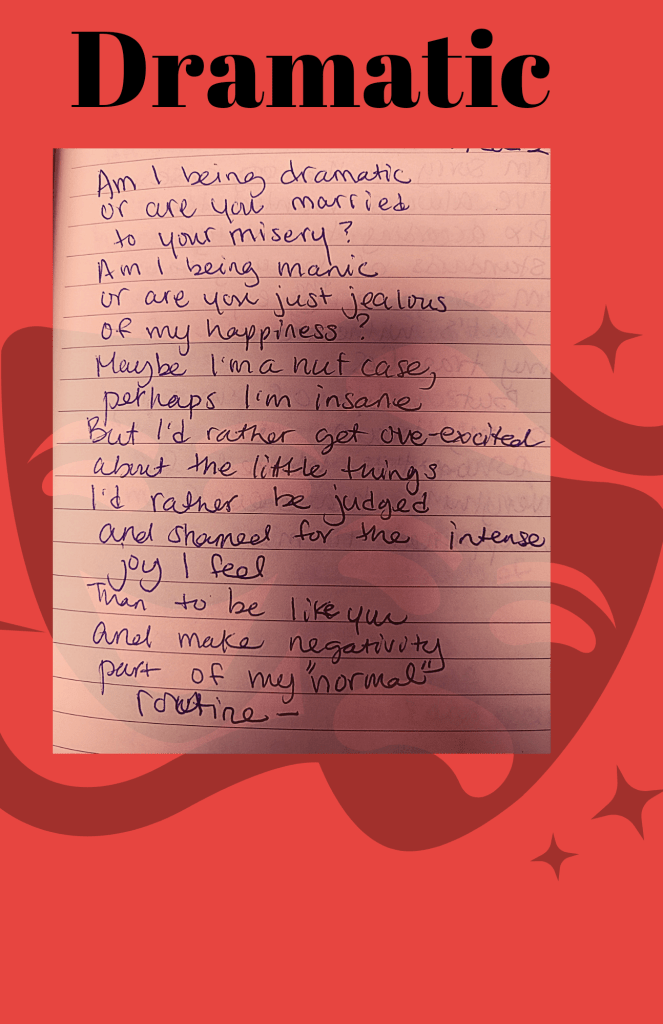 Dramatic
Am I being dramatic
or are you married
to your misery?
Am I being manic
or are you just jealous
of my happiness?
Maybe I'm a nut case,
perhaps I'm insane
But I'd rather get ove-excited
about the little things
I'd rather be judged
and shamed for the intense
joy I feel
Than to be like you
and make negativity
part of my "normal"
routine —